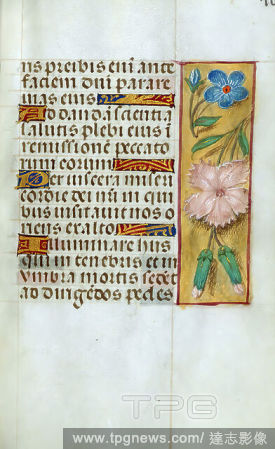 nis preibis eni ante
faciem dni parare
vias eius
Ad dandā scientiā
salutis plebi eius ī
remissionē peccato
rum eorum
Per viscera miseri
cordie dei nr̄i in qui
bus visitauit nos o
riens ex alto
Illuminare hiis
qui in tenebris et in
vmbra mortis sedēt
ad dirigēdos pedes
TPG
www.tpgnews.com/達志影像